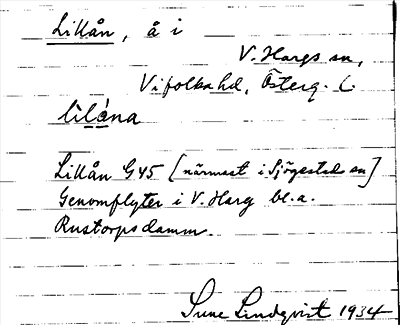 Lillån, å i
V. Hargs sn,
Vifolka hd, Österg. l.
lilána
Lillån G45 [närmast i Sjögestads sn]
Genomflyter i V. Harg bl.a.
Rustorps damm.
Sune Lindqvist 1934